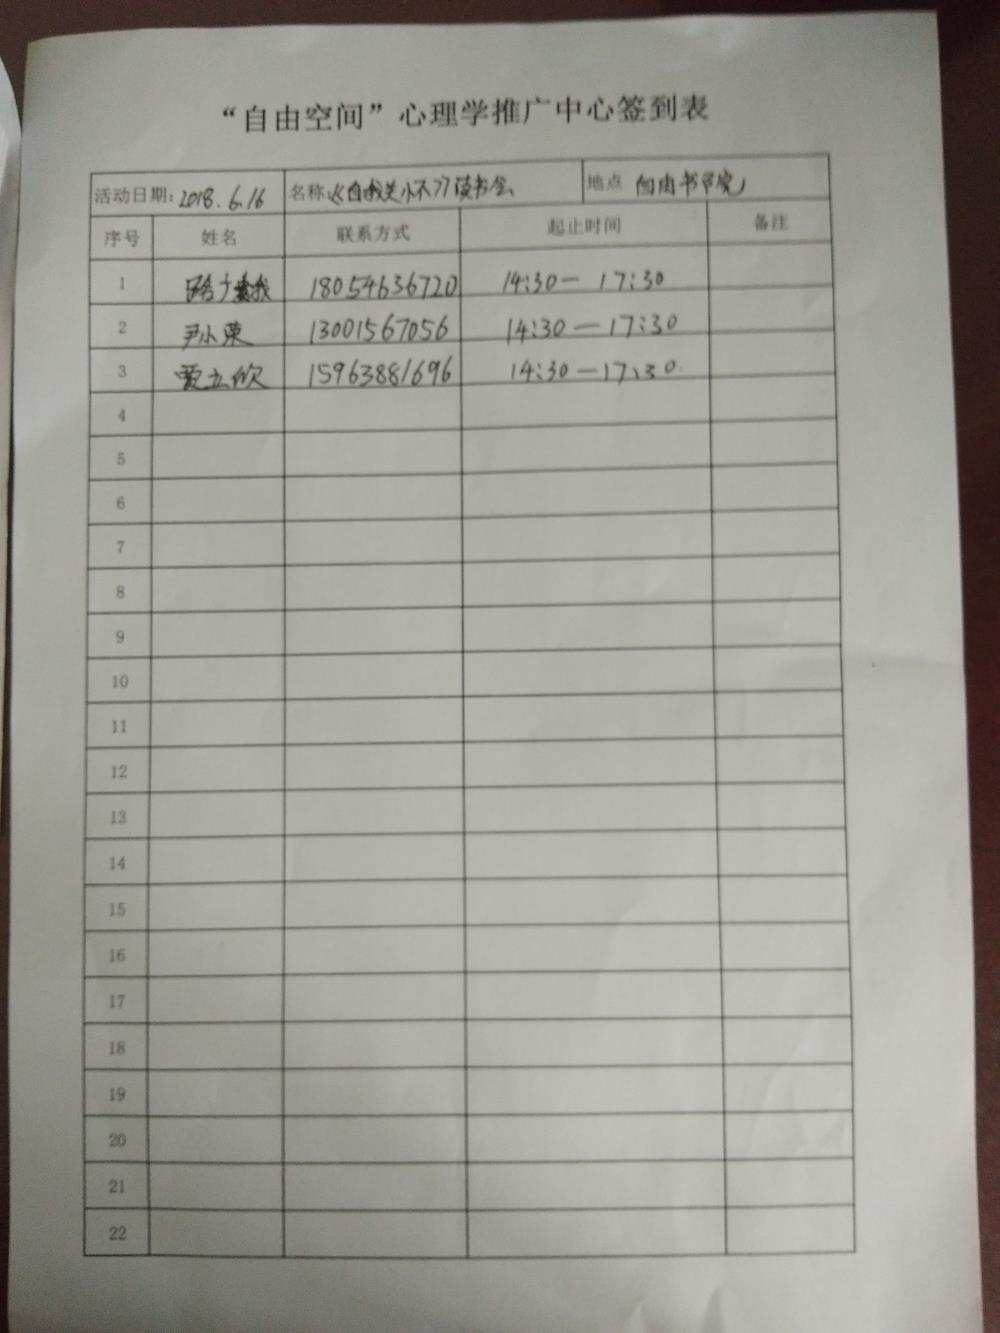 “自由空间”心理学推广中心签到表
活动日期: 2018.6.16 名称:《自我关怀》读书会 地点 自由书店
序号 姓名 联系方式 起止时间 备注
1 18054636720 14:30一 17:30
2 尹小荣 13001567056 14:30 一17:30
3 贾立欣 15963881696 14:30 一17:30
4
5
6
7
8
9
10
11
12
13
14
15
16
17
18
19
20
21
22